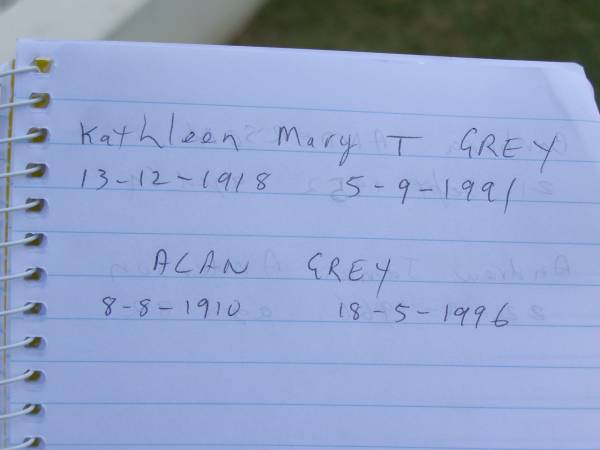 Kathleen Mary T GREY
13-12-1918 5-9-1991
ALAN GREY
8-8-1910 18-5-1996